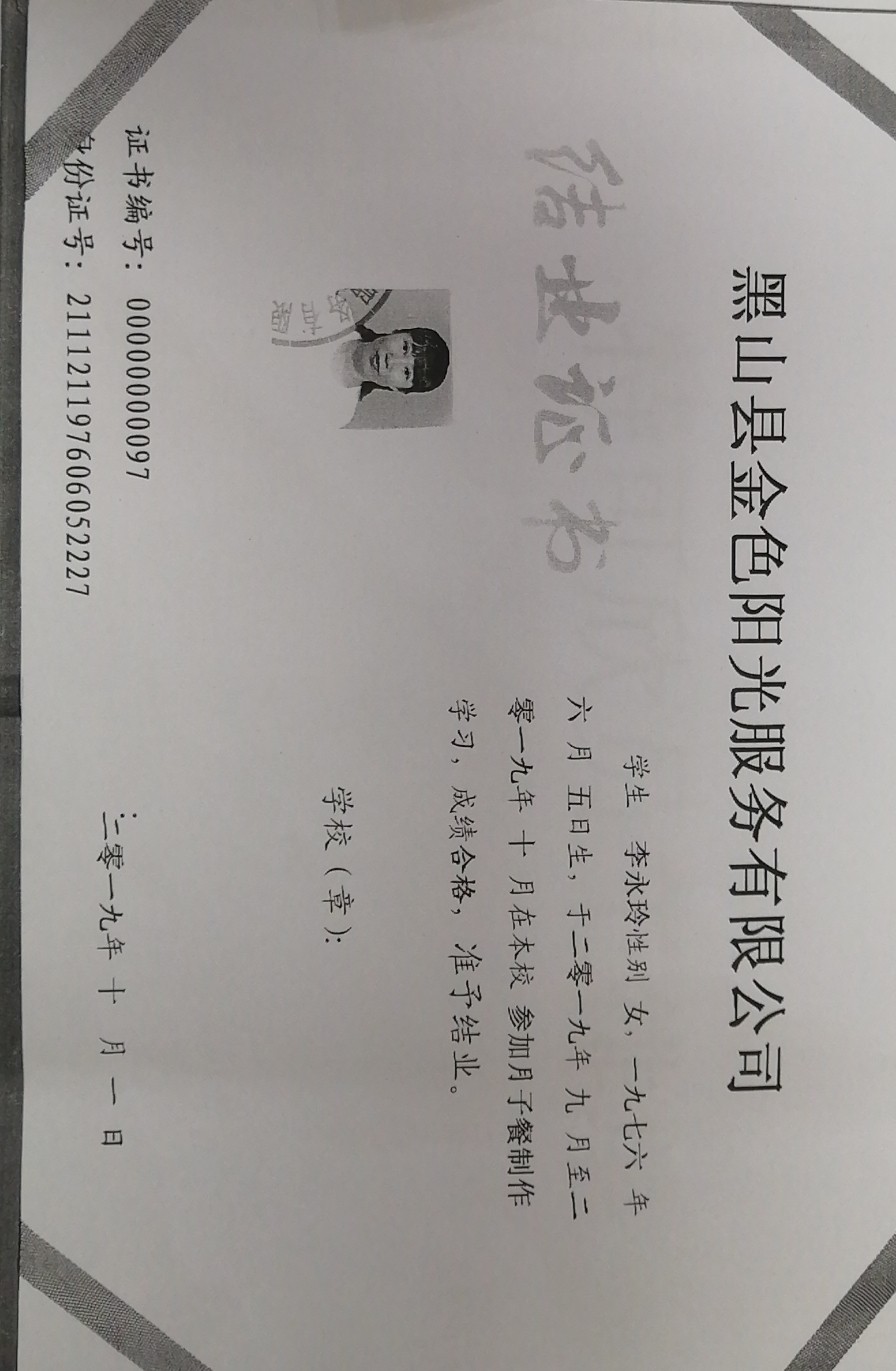 黑山县金色阳光服务有限公司
结业证书
证书编号：00000000097
身份证号：211121197606052227
学生 李永玲性别 女，一九七六 年
六 月 五日生，于二零一九年 九 月至二
零一九年 十 月在本校 参加月子餐制作
学习，成绩合格，准予结业。
学校（章）：
二零一九年 十 月 一 日